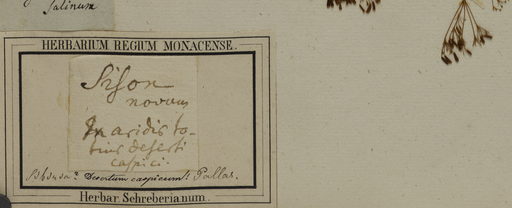 salinum
HERBARIUM REGIUM MONACENSE.
Sison
novum
In aridis to-
tius deserti
caspici.
Desertum caspicum. Pallas.
Herbar. Schreberianum.